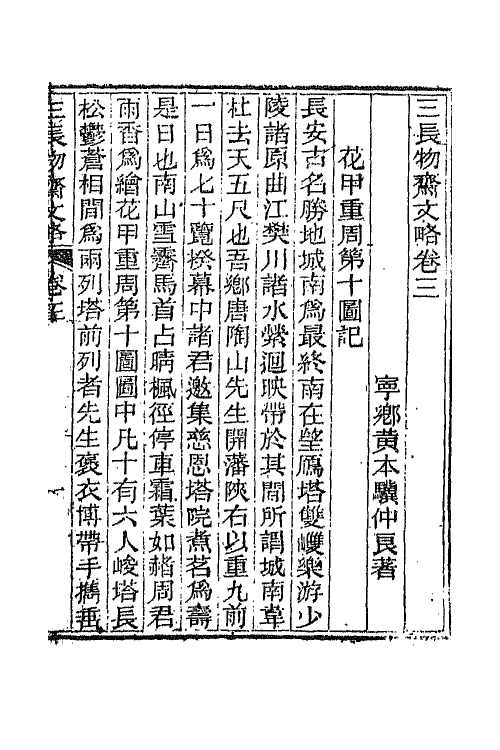 三長物齋文略卷三
寧鄉黃本驥仲良著
花甲重周第十圖記
長安古名勝地城南爲最終南在望鴈塔雙巘樂游少
陵諸原曲江樊川諸水縈迴映帶於其間所謂城南韋
杜去天五尺也吾鄉唐陶山先生開藩陝右以重九前
一日爲七十覽揆幕中諸君邀集慈恩塔院煮茗爲壽
是日也南山雪霽馬首占晴楓徑停車霜葉如赭周君
雨香爲繪花甲重周第十圖圖中凡十有六人峻塔長
松鬱蒼相間爲兩列塔前列者先生褒衣博帶手攜
三長物齋文略 卷三 一